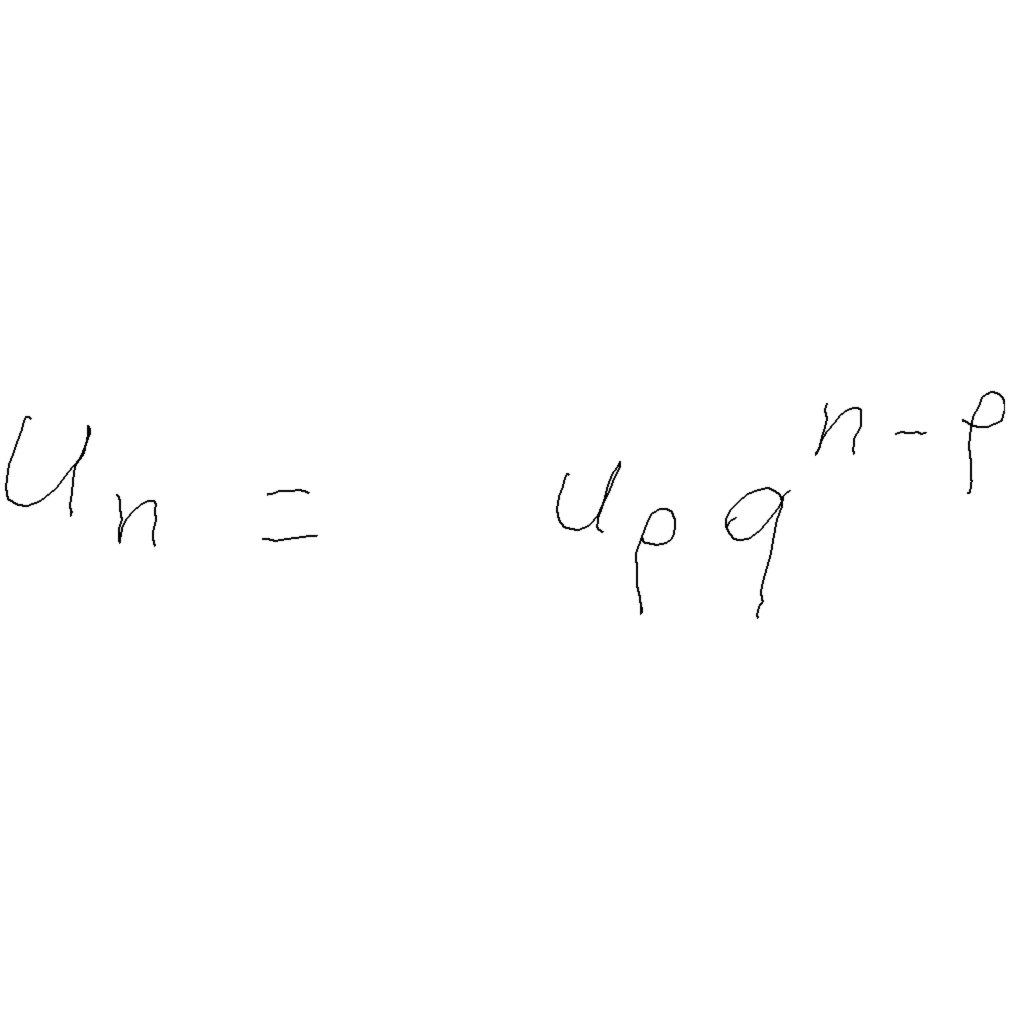 $u_n = u_p q^{n-p}$